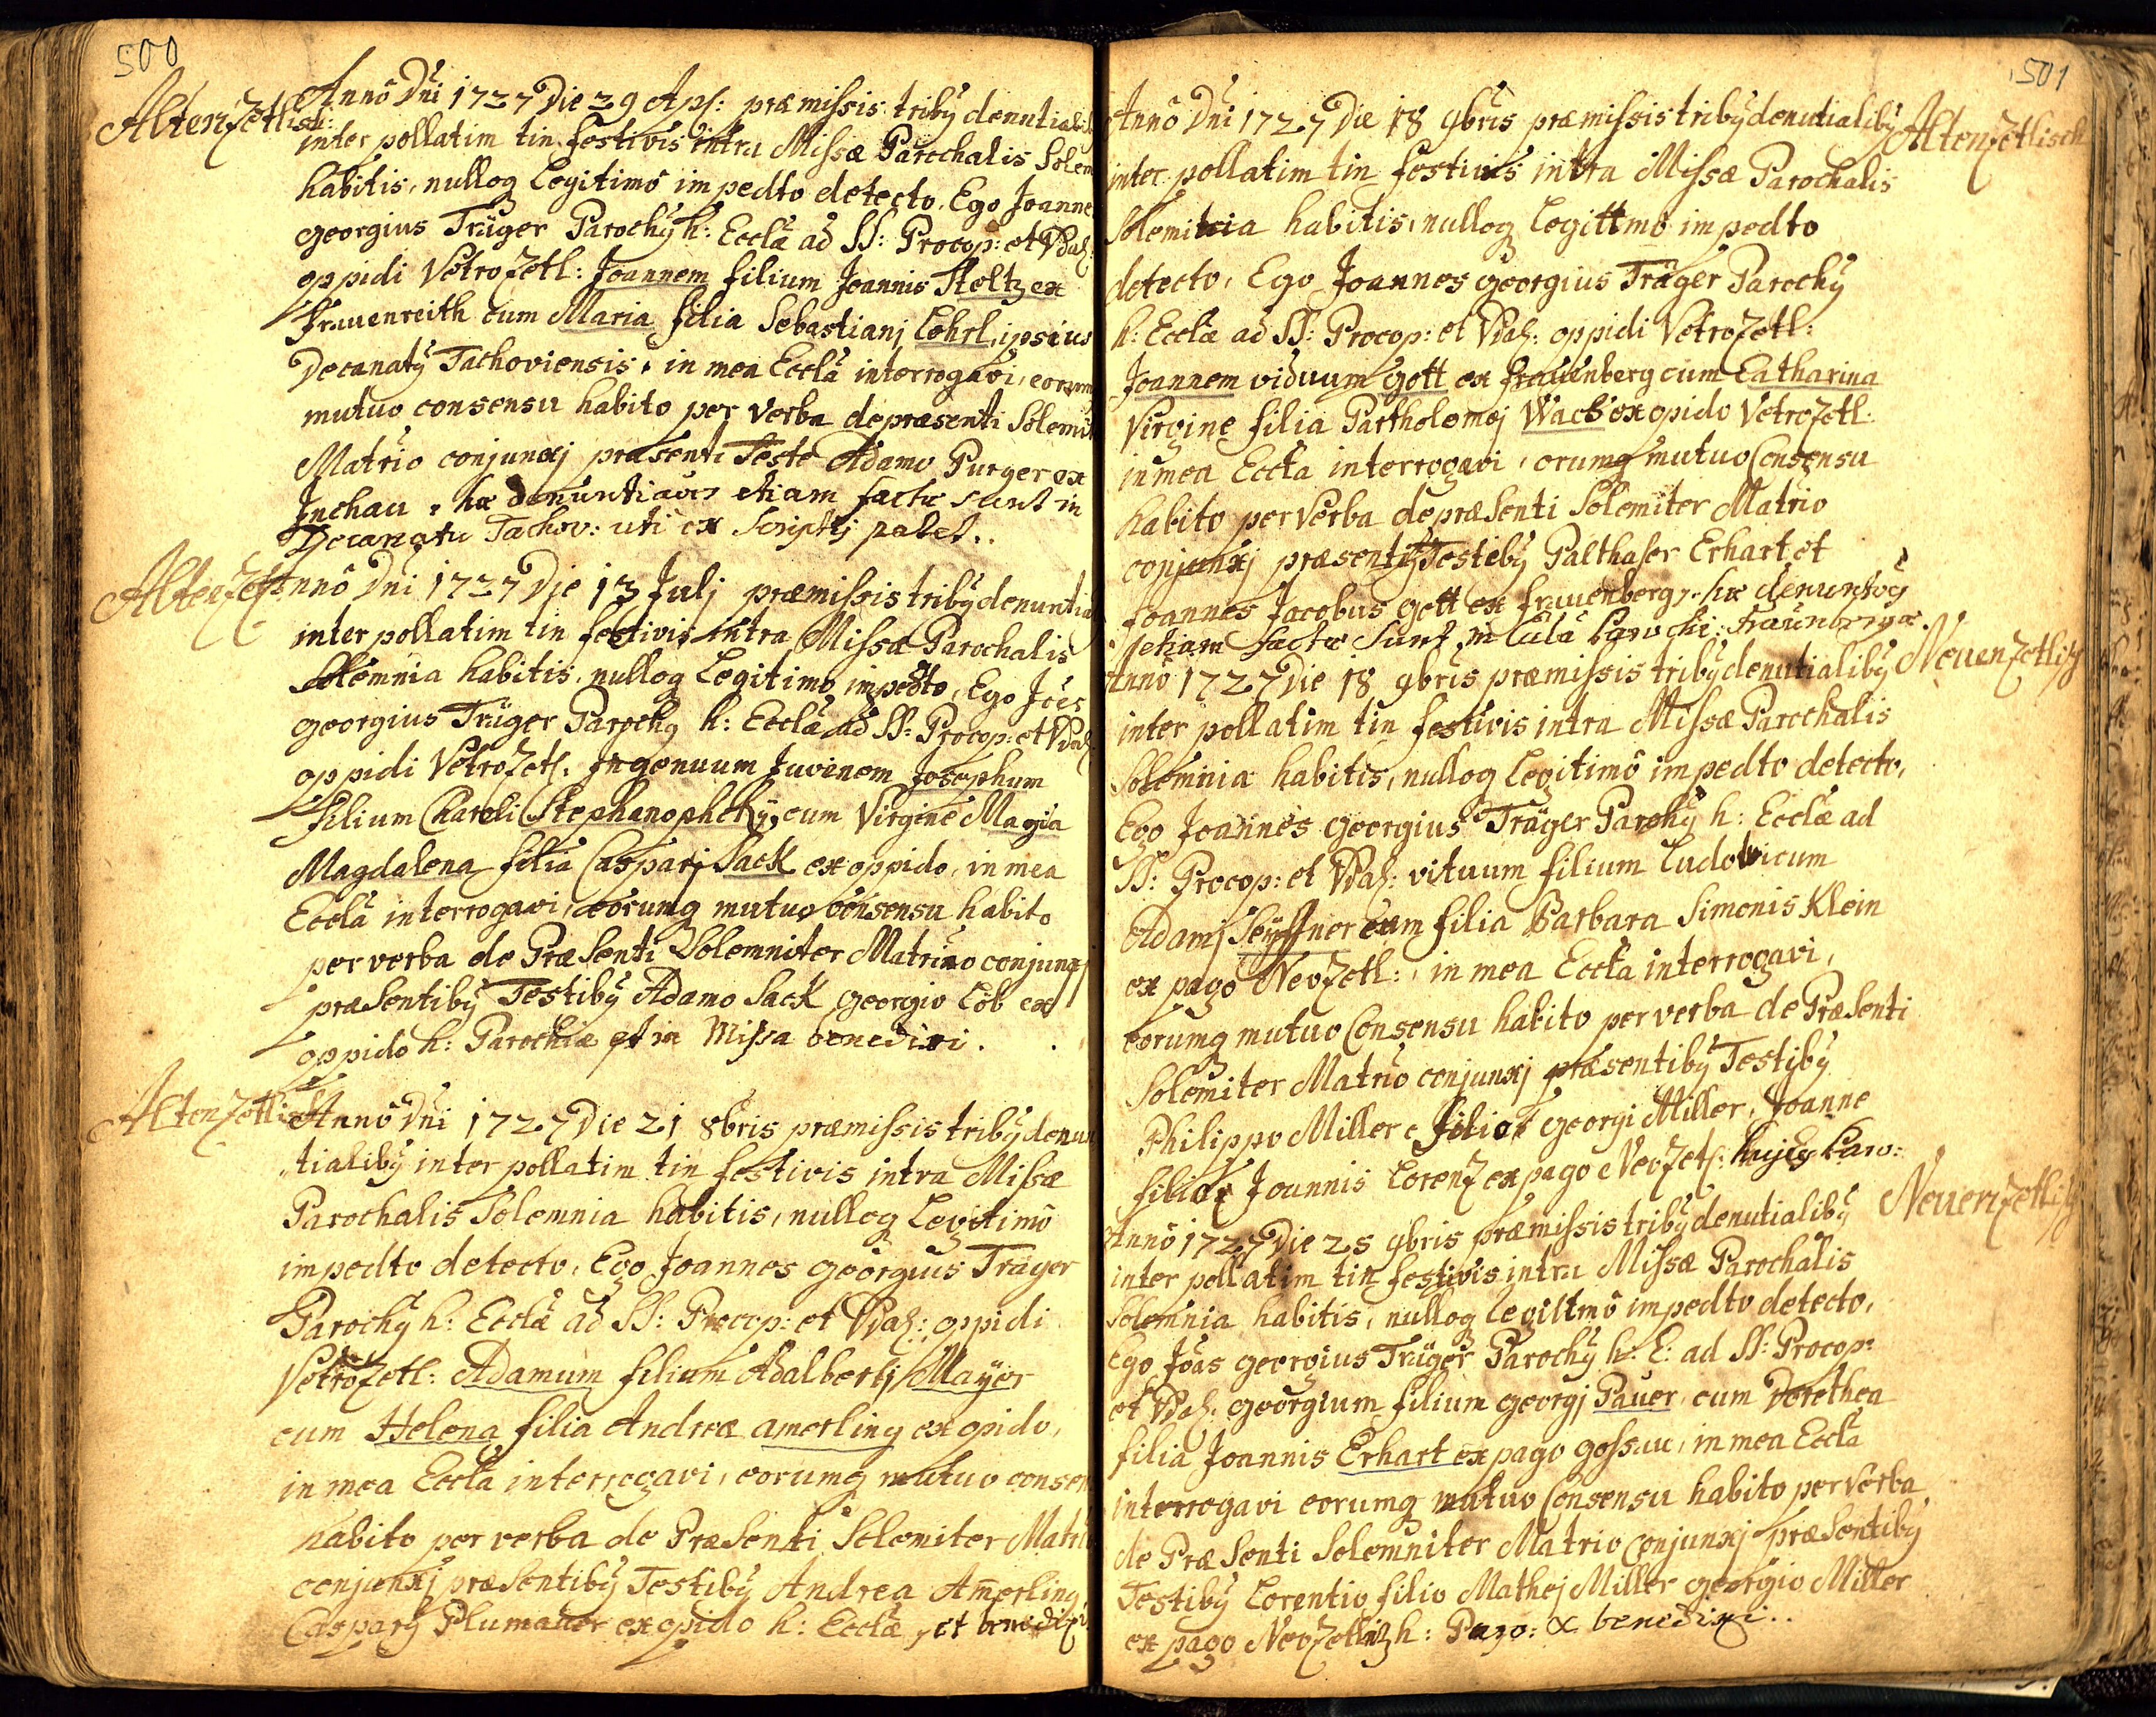 500
Altenzetlisch
Annô Dni 1727 Die 29 Apl: præmissis tribq denntialib
inter pollatim tin festivis intra Missæ Parochalis Solem
habitis, nulloq Legitimô impedto detecto, Ego Joanne
georgius Träger Parochq h: Ecclæ ad SS: Procop: et Vdal:
oppidi Vetrozetl: Joannem filium Joannis Stoltz ex
Frauenreith cum Maria filia Sebastianj Löhrl, ipsius
Decanatq Tachoviensis, in mea Ecclâ interrogavi, eorum
mutuo consensu habito per Verba depræsenti Solemit
Matrio conjunxj præsenti Teste Adamo Purger ex
Inchau, hæ denuntiaoes etiam factæ sunt in
Decanatu Tachov: uti ex Scriptis patet..
Altenzetl
Annô Dni 1727 Die 13 Julj præmissis tribq denuntia
inter pollatim tin festivis intra Missæ Parochalis
Solemnia habitis, nulloq Legitimo impedto, Ego Joes
georgius Träger Parochq h: Ecclæ ad SS: Procop: et Vdal:
oppidi Vetrozetl: Ingenuum Juvenem Josephum
filium Charoli Stephanophskÿ, cum Virgine Maria
Magdalena filia Casparj Sack ex oppido, in mea
Ecclâ interrogavi, eorumq mutuo consensu habito
per verba de Præsenti Solemniter Matrimo conjunxj
præsentibq Testibq Adamo Sack georgio Löb ex
oppido h: Parochiæ et in Missa benedixi.
Altenzetlisch
Annô Dni 1727 Die 21 8bris præmissis tribq denun
tialibq inter pollatim tin festivis intra Missæ
Parochalis Solemnia habitis, nulloq Legitimô
impedto detecto, Ego Joannes georgius Träger
Parochq h: Ecclæ ad SS: Procop: et Vdal: oppidi
Vetrozetl: Adamum filium Adalbertj Mayer
cum Helena filia Andreæ amerling ex opido,
in mea Ecclâ interrogavi, eorumq mutuo consen
habito per verba de Præsenti Solemiter Matri
conjunxj præsentibq Testibq Andrea Amerling,
Casparq Plumauer ex opido h: Ecclæ, et benedixi
501
Altenzetlisch
Annô Dni 1727 Die 18 9bris præmissis tribq denutialibq
inter pollatim tin festivis intra Missæ Parochalis
Solemitria habitis, nulloq Legittmo impedto
detecto, Ego Joannes georgius Träger Parochq
h: Ecclæ ad SS: Procop: et Vdal: oppidi Vetrozetl:
Joannem viduum gott ex frauenberg cum Catharina
Virgine filia Partholomej Wack ex opido Vetrozetl:
in mea Eccla interrogavi, orumq mutuo Consensu
habito per Verba depræsenti Solemiter Matrio
conjunxj præsentibq Testebq Palthaser Erhart et
Joannes Jacobus gott ex frauenberg, hæ denuntiaoes
etiam factæ sunt in Parochi: fraunbergæ.
Neuenzetlisch
Annô 1727 Die 18 9bris præmissis tribq denutialibq
inter pollatim tin festivis intra Missæ Parochalis
Solemnia habitis, nulloq Legitimô impedto detecto,
Ego Joannes georgius Träger Parohq h: Ecclæ ad
SS: Procop: et Vdal: vituum filium Ludovicum
Adamj Seyffner cum filia Barbara Simonis Klein
ex pago Neozetl:, in mea Eccla interrogavi,
eorumq mutuo Consensu habito per verba de Præsenti
Solemiter Matrio conjunxj præsentibq Testibq
Philippo Miller, filio georgi Miller, Joanne
filio Joannis Lorenz ex pago Neozetl: hujq Paro:
Neuenzetlisch
Annô 1727 Die 25 9bris præmissis tribq denutialibq
inter pollatim tin festivis intra Missæ Parochalis
Solemnia habitis, nulloq Legittmô impedto detecto,
Ego Joas georgius Träger Parochq h: E: ad SS: Procop:
et Vdal: georgium filium georgj Pauer, cum Dorethea
filia Joannis Erhart ex pago gossau, in mea Ecclâ
interrogavi eorumq mutuo Consensu habito per Verba
de Præsenti Solemniter Matrio conjunxj præsentibq
Testibq Lorentio filio Mathej Miller georgio Miller
ex pago Neozetliz h: Paro: & benedixi..